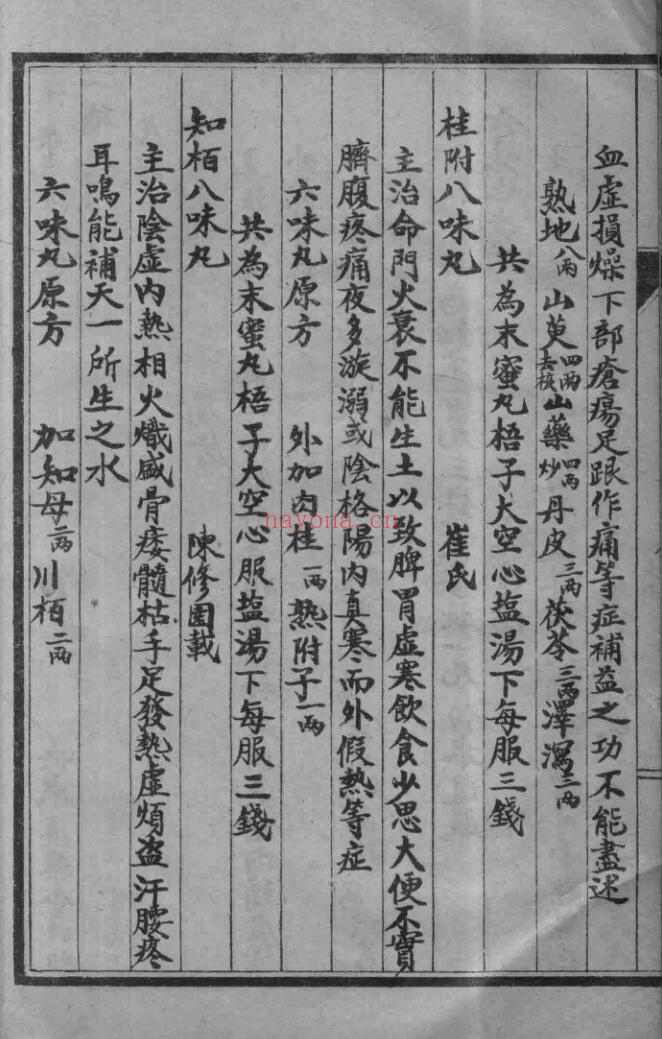 血虛損燥下部瘡瘍足跟作痛等症補益之功不能盡述
熟地八兩山萸四兩去核山藥四兩炒丹皮三兩茯苓三兩澤瀉三兩
共為末蜜丸梧子大空心塩湯下每服三錢
桂附八味丸 崔氏
主治命門火衰不能生土以致脾胃虛寒飲食少思大便不實
臍腹疼痛夜多漩溺或陰格陽內真寒而外假熱等症
六味丸原方 外加肉桂一兩熟附子一兩
共為末蜜丸梧子大空心服塩湯下每服三錢
知柏八味丸 陳修園載
主治陰虛內熱相火熾盛骨痿髓枯手足發熱虛煩盗汗腰疼
耳鳴能補天一所生之水
六味丸原方 加知母二兩川柏二兩
nayona.cn